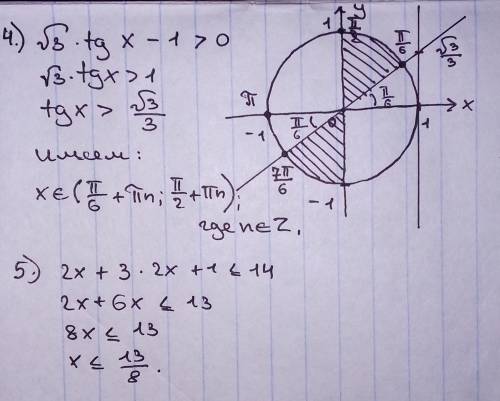 4.) √3 · tg x − 1 > 0
√3 · tgx > 1
tgx > √3/3
имеем:
x ∈ (π/6 + πn; π/2 + πn);
где n ∈ Z.
y
1
π/2
π/6
√3/3
π
π/6
π/6
0
x
−1
1
7π/6
−1
5.) 2x + 3 · 2x + 1 ≤ 14
2x + 6x ≤ 13
8x ≤ 13
x ≤ 13/8.